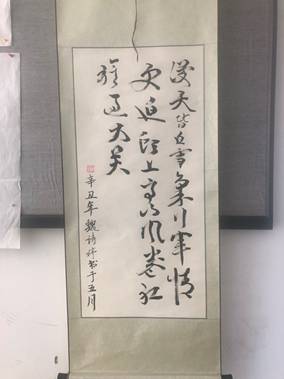 漫天皆白雪里行军情
更迫头上高山风卷红
旗过大关
辛丑年 魏诗书于五月